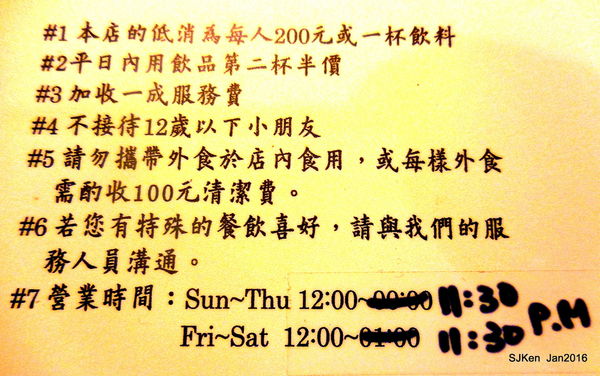 #1 本店的低消為每人200元或一杯飲料
#2平日內用飲品第二杯半價
#3 加收一成服務費
#4 不接待12歲以下小朋友
#5 請勿攜帶外食於店內食用，或每樣外食
需酌收100元清潔費。
#6 若您有特殊的餐飲喜好，請與我們的服
務人員溝通。
#7 營業時間：Sun~Thu 12:00~00:00 11:30
Fri~Sat 12:00~01:00 11:30 P.M
SJKen Jan2016